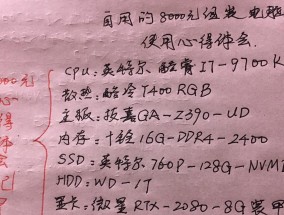 自用的8000元组装电脑
使用心得体会.
CPU:英特尔 酷睿 I7-9700K
散热:酷冷T400 RGB
主板:技嘉GA-Z390-UD
内存:十铨16G-DDR4-2400
SSD:英特尔760P-128G-NVM
HDD:WD-1T
显卡:微星RTX-2080-8G装甲
000元
心
得
体
会